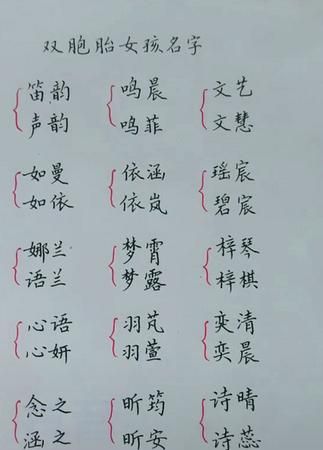 双胞胎女孩名字
笛韵 鸣晨 文艺
声韵 鸣菲 文慧
如曼 依涵 瑶宸
如依 依岚 碧宸
娜兰 梦霄 梓琴
语兰 梦露 梓棋
心语 羽芃 奕清
心妍 羽萱 奕晨
念之 昕筠 诗晴
涵之 昕安 诗蕊